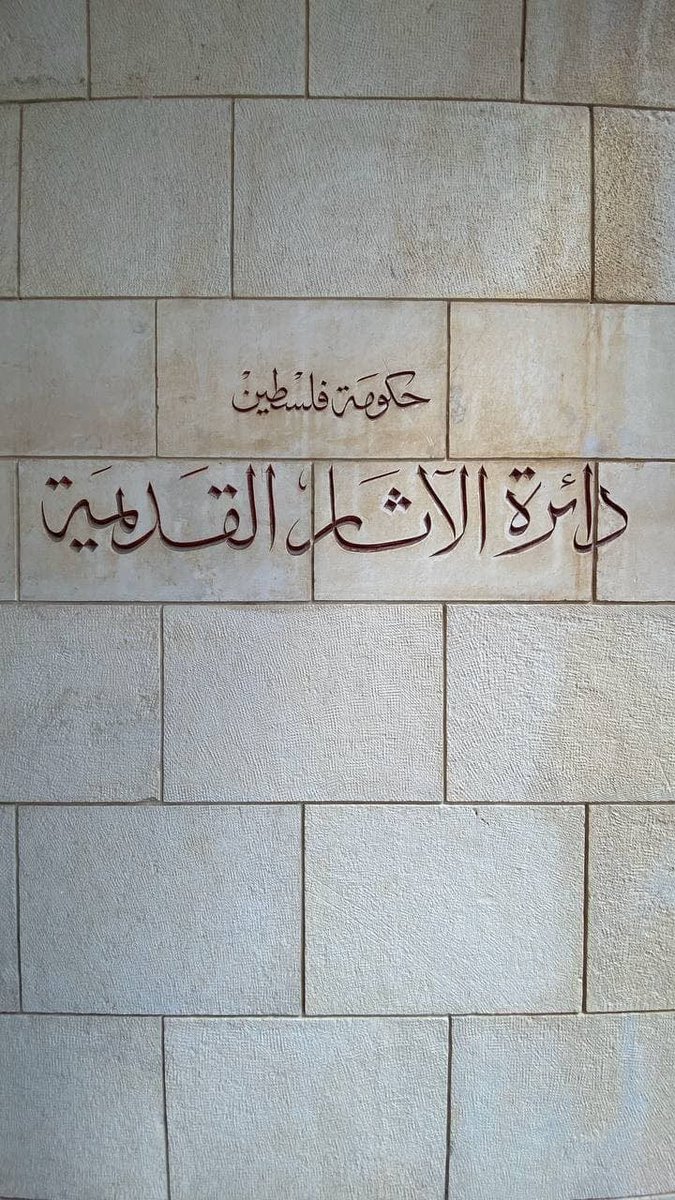 حكومة فلسطين
دائرة الآثار القديمة